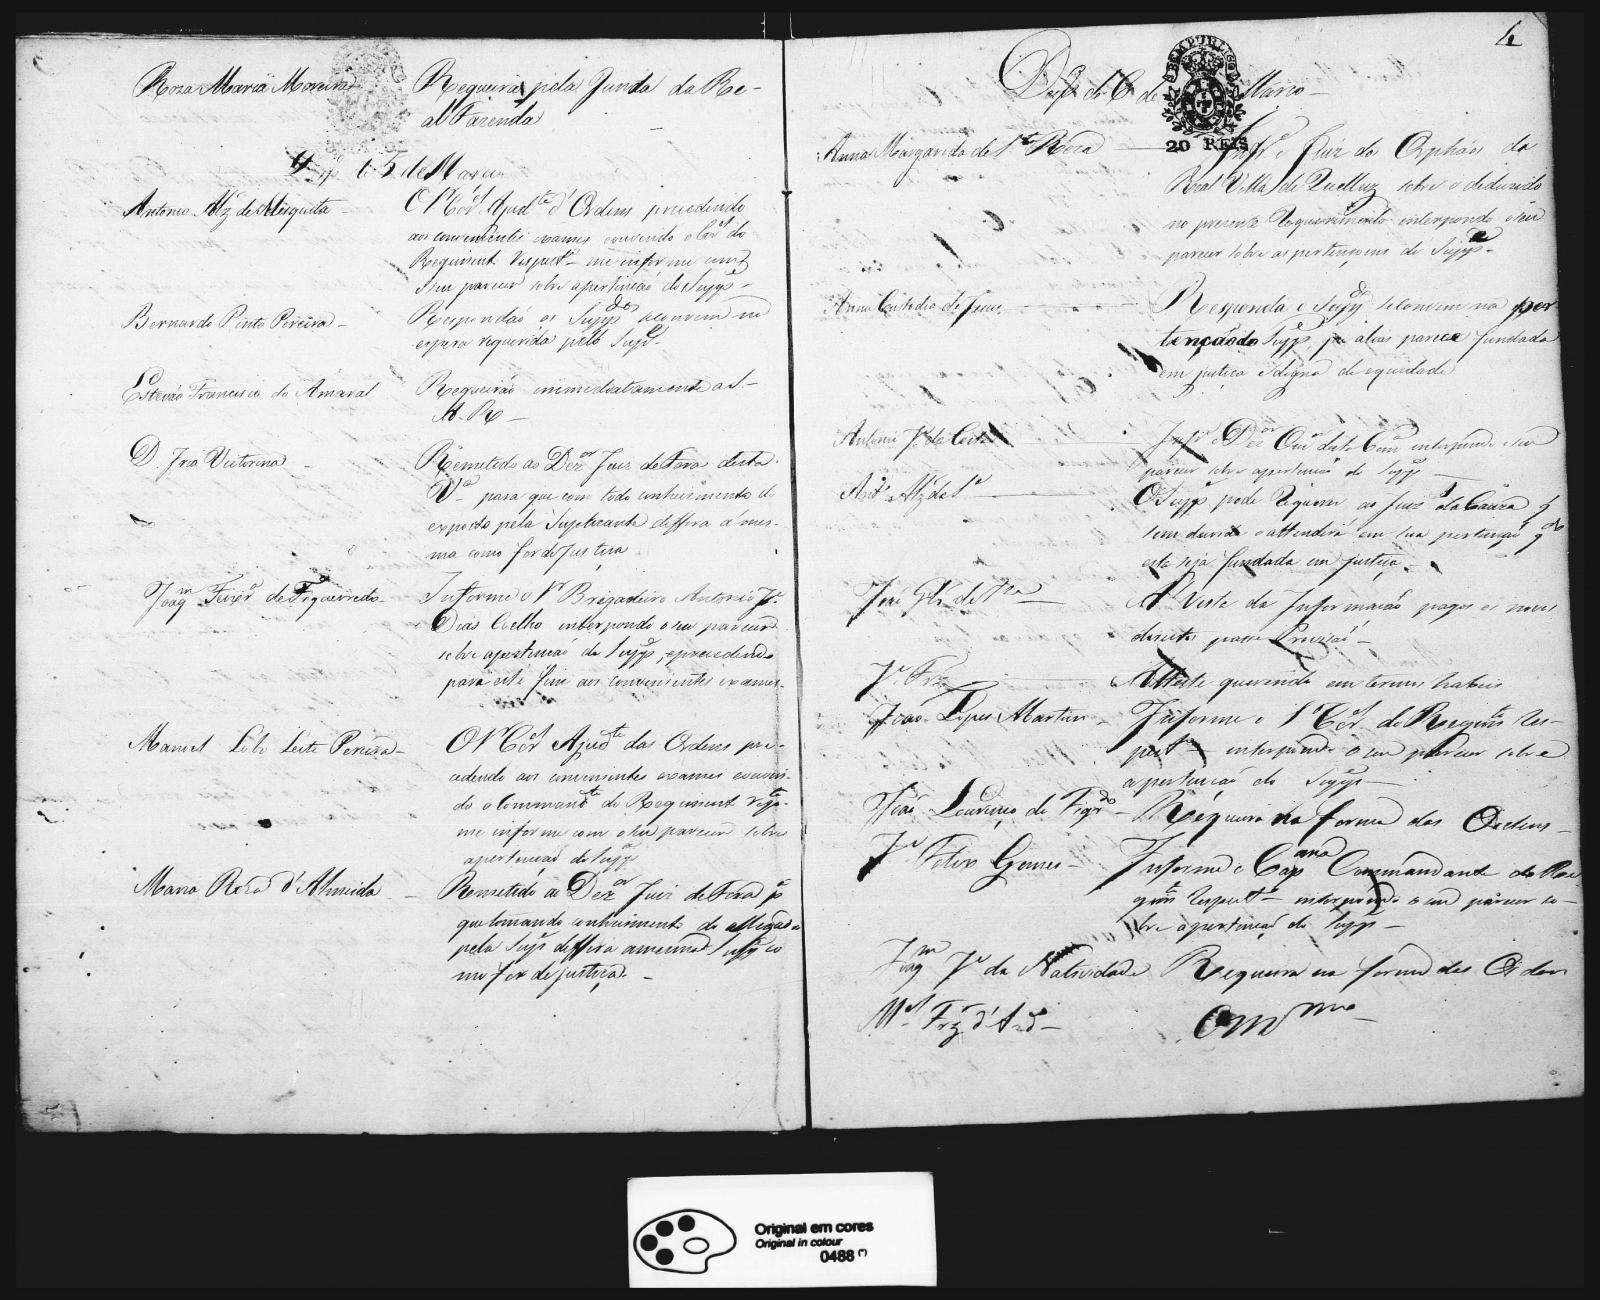 Roza Maria Moreira
Requeira pela Junta da Re-
al Fazenda
5 de Março
Antonio Alz de Mesquita
O Sr Cor.el Ajud.te d'Ordens precedendo
aos convenientes exames ouvindo o Cor.el do
Regiment. Respect.o me informe com
o seu parecer sobre a pertenção do Supp.e
Bernardo Pinto Pereira
Respondão os Supp.dos
espera requerida pelo Supp.e
Estevão Francisco do Amaral
Requeirão immediatamente a S.
A. R.
D. Victorina
Remetido ao Dez.or Juiz de Fora desta
V.a para que com todo conhecimento do
exposto pela Supplicante deffira á mes-
ma como for de Justiça
Joaq.m de Figueiredo
Informe o Sr Brigadeiro Antonio J.e
Dias Coelho interpondo o seu parecer
sobre apertenção do Supp.e, eprecedendo
para este fim aos convenientes exames
Manoel Lobo Leite Pereira
O Sr Cor.el Ajud.te das Ordens pre-
cedendo aos convenientes exames eouvin-
do o Command.te do Regiment
me informe com oseu parecer sobre
apertenção do Supp.e
Maria Roza d'Almeida
Remetido ao Dez.or Juiz de Fora p.a
que tomando conhecimento do allegado
pela Supp.e deffira amesma Supp.e co
mo for de justiça
4
Desp. de 6 de Março
BEM PUBLICO
20 REIS
Anna Margarida de S.ta Roza
Inf.e o Juiz do Orphãos da
Real Villa de Quelluz sobre o deduzido
no presente Requerimento interpondo o seu
parecer sobre as pertençoens do Supp.e
Anna Custodia de Jesus
Responda o Supp.do
tenção do Supp.e alias parece fundada
em justiça edigna de equidade
Antonio J.e da Costa
Inf.e o Dez.or Ouv.or desta Com.ca interpondo seu
parecer sobre apertenção do Supp.e
Ant.o Alz de
O Supp.e pode requerer ao Juiz da Cauza q
sem duvida o attenderá em sua pertenção q.do
esta seja fundada em justiça
João
A Viste da Informação pagos os novos
direitos passe Provisão
J.e Frz
Atteste querendo em termos habeis
João Lopes Martins
Informe o Sr Cor.el do Regim.to Res-
pect.o interpondo o seu parecer sobre
apertenção do Supp.e
João Lourenço de Figr.do
Requeira na forma das Ordens
J.e Felix Gomes
Informe o Cap.am Commandante do Re-
gim.to Respect.o interpondo o seu parecer so-
bre apertenção do Supp.e
Joaq.m J.e da Natividade
Requeira na forma das Ordens
M.el Frz d'And.e
O m.mo
Original em cores
Original in colour
0488 (*)